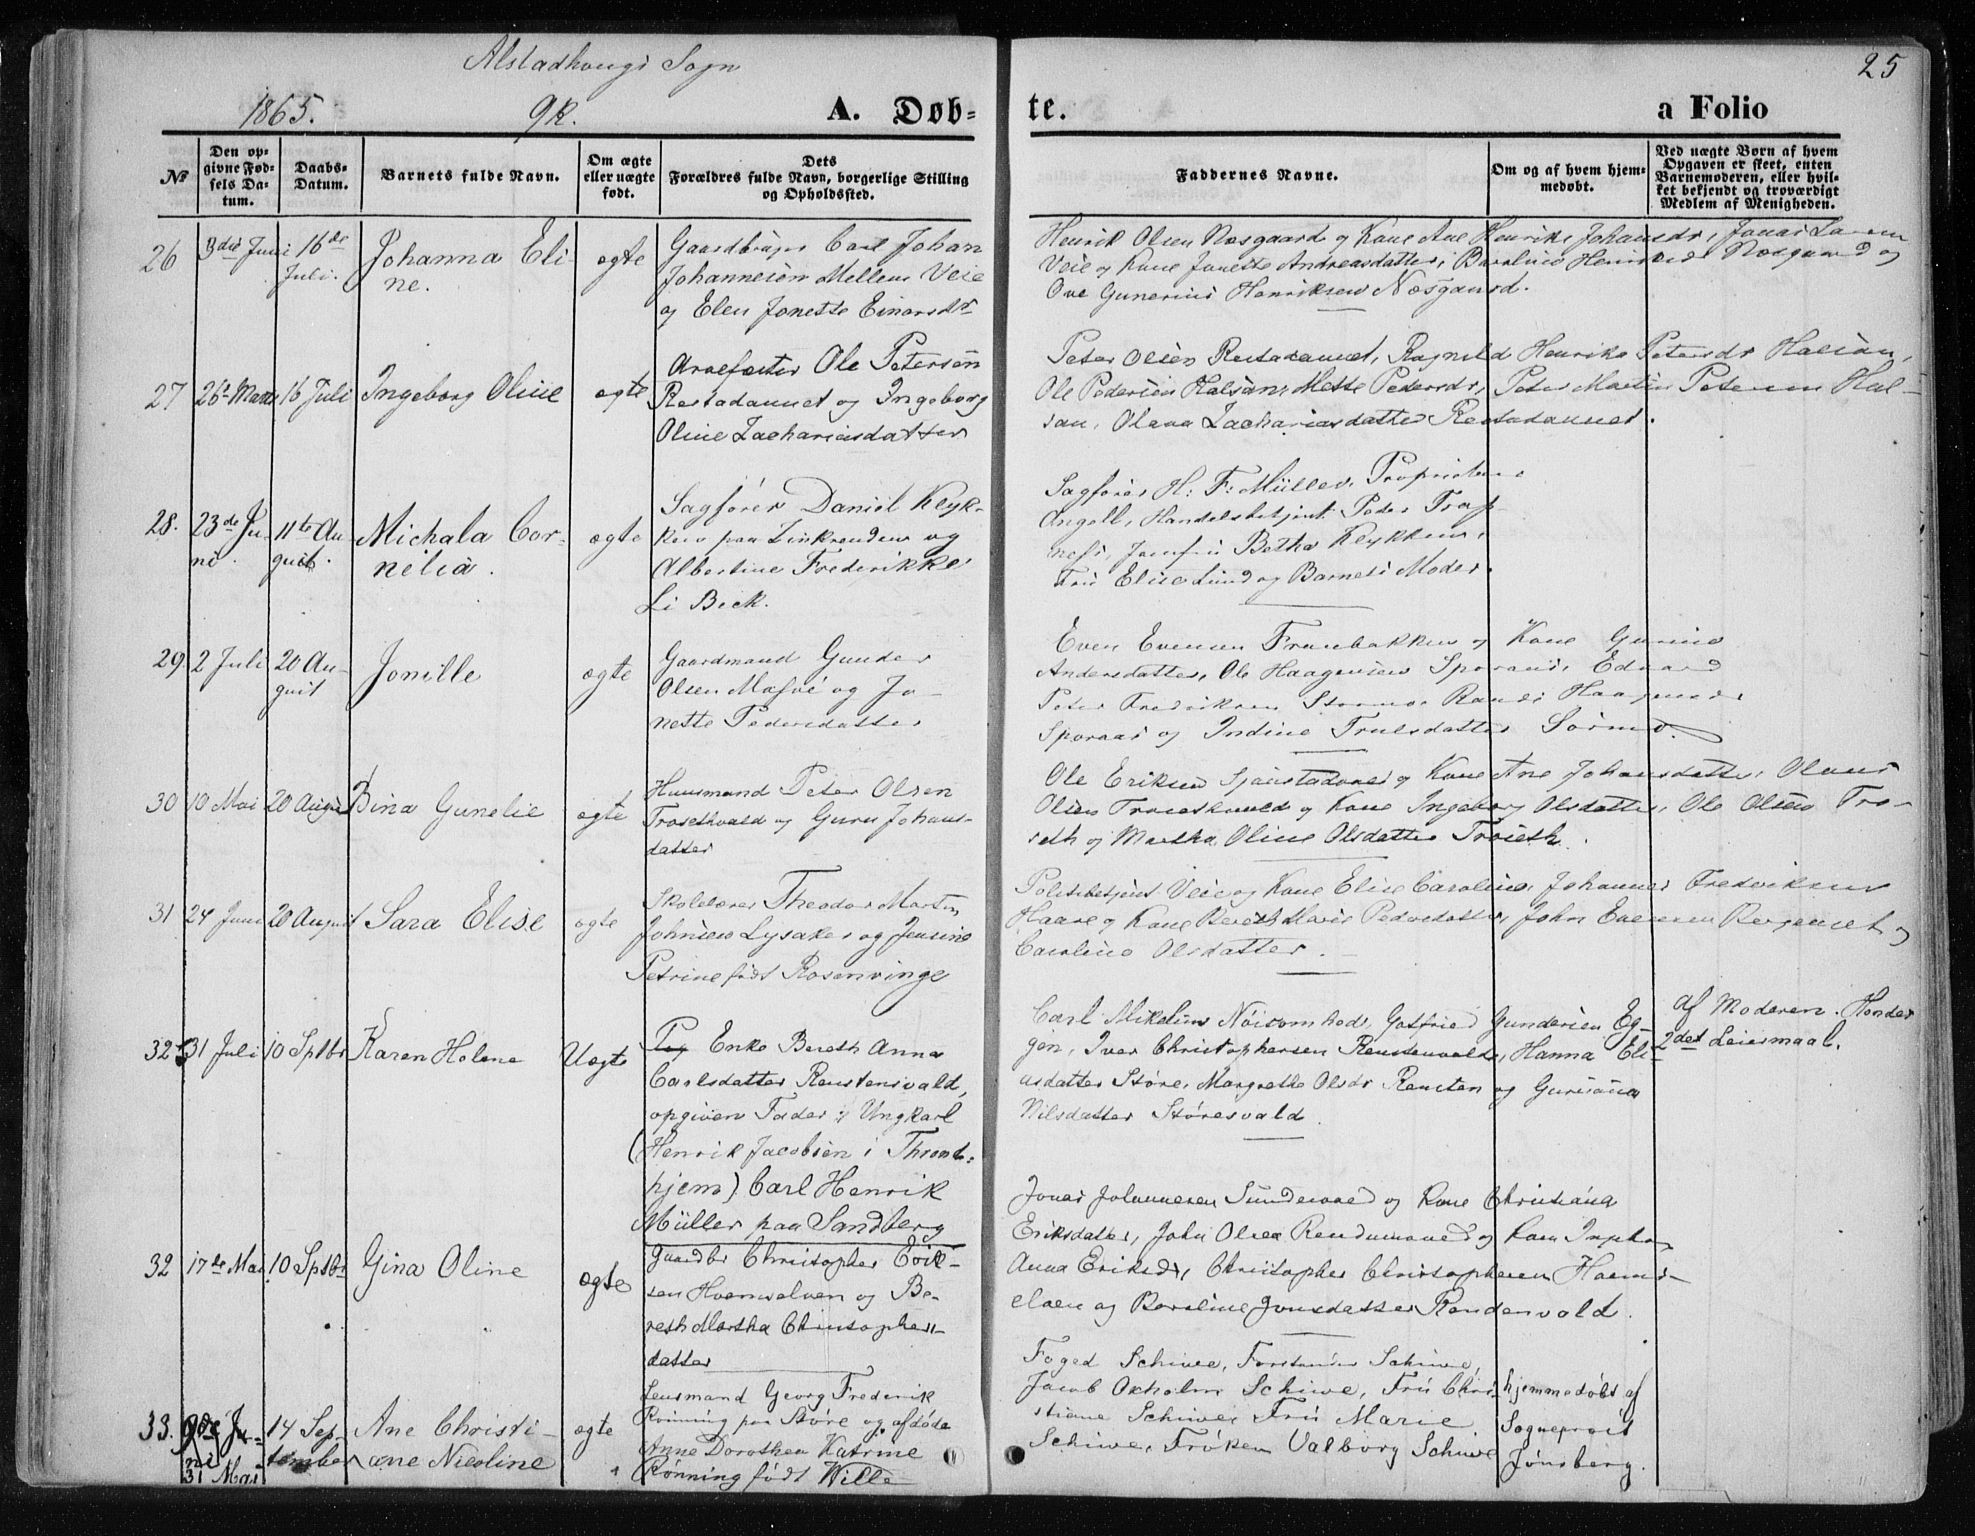 Alstadhougs Sogn
25
1865.
qk.
A. Døb-
te.
a Folio
No
Den op-
givne Fød-
sels Da-
tum.
Daabs-
Datum.
Barnets fulde Navn.
Om ægte
eller uægte
født.
Dets
Forældres fulde Navn, borgerlige Stilling
og Opholdssted.
Faddernes Navne.
Om og af hvem hjem-
medøbt.
Ved uægte Børn af hvem
Opgaven er skeet, enten
Barnemoderen, eller hvil-
ket bekjendt og troværdigt
Medlem af Menigheden.
26
3die Juni
16de
Juli.
Johanna Eli-
ne.
ægte
Gaardbruger Carl Johan
Johannesen Mellem Veie
og Elen Jonette Einarsdtr
Henrik Olsen Næsgaard og Kone Ane Henrike Johansdr, Jonas
Veie og Kone Jonette Andreasdatter, Næsgaard og
Ove Gunerius Henriksen Næsgaard.
27
26 Marts
16 Juli
Ingeborg Oline
ægte
Arvefæster Ole Petersen
Restadaunet og Ingeborg
Oline Zachariasdatter
Peter Olsen Restadaunet, Ragnild Henrike Petersdr Halsan,
Ole Pedersen Halsan, Mette Pedersdr, Peter Martin Petersen Hal-
san, Olava Zachariasdatter Restadaunet.
28.
23de Ju-
ni.
11te Au-
gust.
Michala Cor-
nelia.
ægte
Sagfører Daniel Klyk-
ken paa Leikrenden og
Albertine Frederikke
Li Beck.
Sagfører H: F: Müller, Proprietær
Angell, Handelsbetjent Peder Trap-
nes, Jomfru Betha Klykken,
Fru Elise Lund og Barnets Moder.
29.
2 Juli
20 Au-
gust
Jonille
ægte
Gaardmand Gunder
Olsen Masvi og Jo-
nette Pedersdatter
Even Evensen Tranbakken og Kone
Andersdatter, Ole Haagensen Sporaas, Edvard
Peter Fredriksen Stormo, Randi Haagensdr
Sporaas og Indine Trulsdatter Sørmo.
30
10 Mai
20 August
Bina Gunelie
ægte
Huusmand Peter Olsen
Trosethvald og Guru Johans-
datter
Ole Eriksen og Kone Ane Johansdatter, Olaus
Olsen Troesethvald og Kone Ingeborg Olsdatter, Ole Olsen Tro-
seth og Martha Oline Olsdatter Troseth.
31
24 Juni
20 August
Sara Elise
ægte
Skolelærer Theodor Martin
Johnsen Lysaker og Jensine
Petrine født Rosenvinge
Politibetjent Veie og Kone Elise Caroline, Johannes Fredriksen
Haare og Kone Bereth Marie Pedersdatter, John Evensen Bergaunet og
Caroline Olsdatter.
32
31 Juli
10 Sptbr
Karen Helene
Uægte
Pig Enke Bereth Anna
Carlsdatter Reustensvald,
opgiven Fader: Ungkarl
(Henrik Jacobsen i Thrond-
hjem) Carl Henrik
Müller paa Sandberg
Carl Mikelsen Nøisomhed, Gotfried Gundersen Eg-
gen, Iver Christophersen Reustenvald, Hanna Eli-
asdatter Støre, Margrethe Olsdr Reusten og Guruanna
Nilsdatter Støresvald.
af Moderen. Hendes
2det Leiermaal.
32
17de Mai
10 Sptbr
Gina Oline
ægte
Gaardbr Christopher Erik-
sen Hoemselven og Be-
reth Martha Christophers-
datter
Jonas Johannesen Sundevald og Kone Christiana
Eriksdatter, John Olsen og Kone
Anna Eriksdr, Christopher Christophersen Hoems-
elven og Beroline Jonsdatter
33.
9de Ju-
ni
31 Mai
14 Sep-
tember
Ane Christi-
ane Nicoline
ægte
Lensmand Georg Frederik
Rønning paa Støre og afdøde
Anne Dorothea Katrine
Rønning født Wille
Foged Schiwe, Forstander Schiwe,
Jacob Oxholm Schiwe, Fru Chri-
stiane Schiwe, Fru Marie
Schiwe, Frøken Valborg Schiwe
hjemmedøbt af
Sogneprest
Jønsberg.